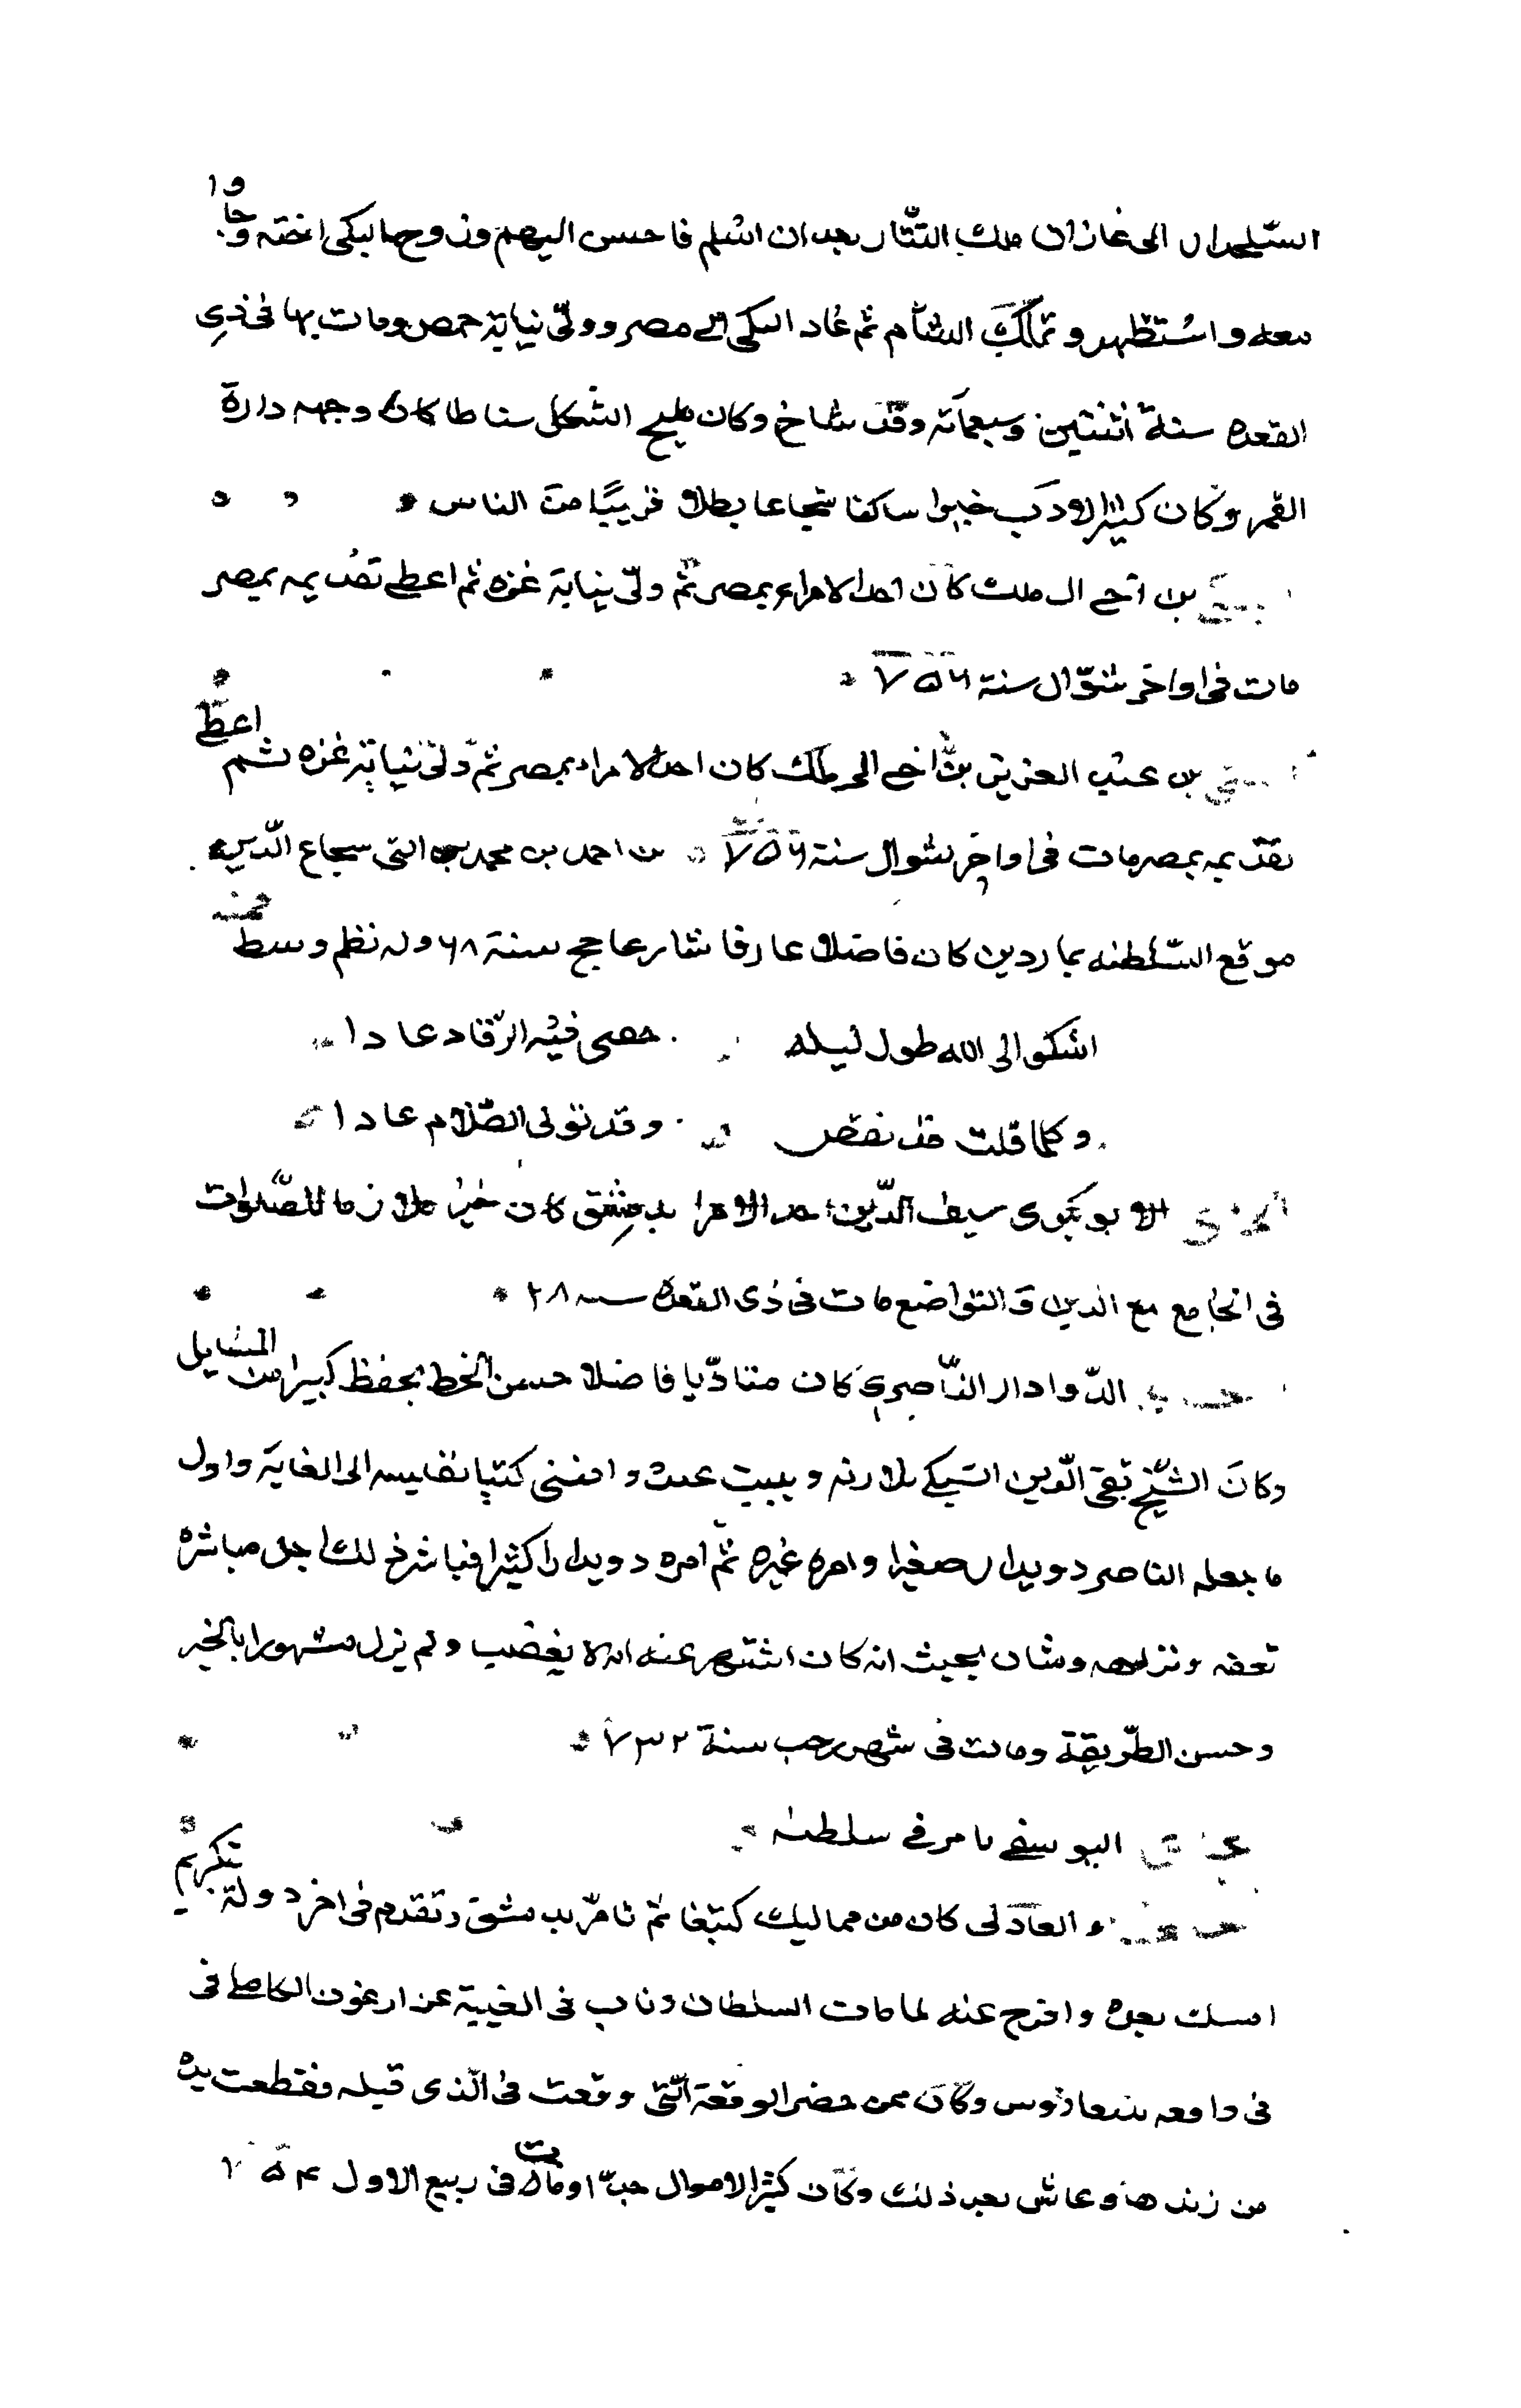 وا
السلحدار الى غازان ملك التتار بعد ان اسلم فاحسن اليهم وزوجها لبكى اخته وجا
معه واستظهر وتملك الشام ثم عاد البكى الى مصر وولى نيابة حمص ومات بها فى ذى
القعدة سنة اثنتين وسبعمائة وقد شاخ وكان مليح الشكل سناطا كان وجهه دارة
القمر وكان كثير الادب خبيرا ساكنا شجاعا بطلا قريبا من الناس
بن اخى ال ملك كان احد الامراء بمصر ثم ولى نيابة غزه ثم اعطى تقديمه بمصر
مات فى اواخر شوال سنة ٧٥٦
بن عبد العزيز بن اخى الى ملك كان احد الامراء بمصر ثم ولى نيابة غزه ثم اعطى
تقديمه بمصر مات فى اواخر شوال سنة ٧٥٦ بن احمد بن محمد بن التى شجاع الدين
موقع السلطنه بماردين كان فاضلا عارفا شاعرا حج سنة ٦٨ وله نظم وسط فمنه
اشكو الى الله طول ليله حصى فيه الرقاد عادا
وكلما قلت قد تقضى وقد تولى الظلام عادا
الابو بكرى سيف الدين احد الامرا بدمشق كان خيرا ملازما للصلوات
فى الجامع مع الدين والتواضع مات فى ذى القعدة سنه ٢٨
الدوادار الناصرى كان متادبا فاضلا حسن الخط يحفظ كبيرا من المسايل
وكان الشيخ تقى الدين السبكى يلازمه ويبيت عنده واقتنى كتبا نفليسه الى الغاية واول
ما جعله الناصر دويدار صغيرا وامره غيره ثم امره دويدارا كثيرا فباشر ذلك اجل مباشره
تعفه ونزاهه وشان بحيث انه كان اشتهر عنه انه لا يغضب ولم يزل مشهورا بالخير
وحسن الطريقة ومات فى شهر رجب سنة ٧٣٢
اليوسفى تامر فى سلطنه
العادلى كان من مماليك كتبغا ثم تامر بدمشق وتقدم فى اخر دولة تنكز ثم
امسك بعده وافرج عنه لما مات السلطان وناب فى الغيبة عن ارغون الكاملى فى
فى واقعه وكان ممن حضر الوقعة التى وقعت فى الذى قبله فقطعت يده
من زندها وعاش بعد ذلك وكان كثير الاموال جدا ومات فى ربيع الاول ٧٥٤